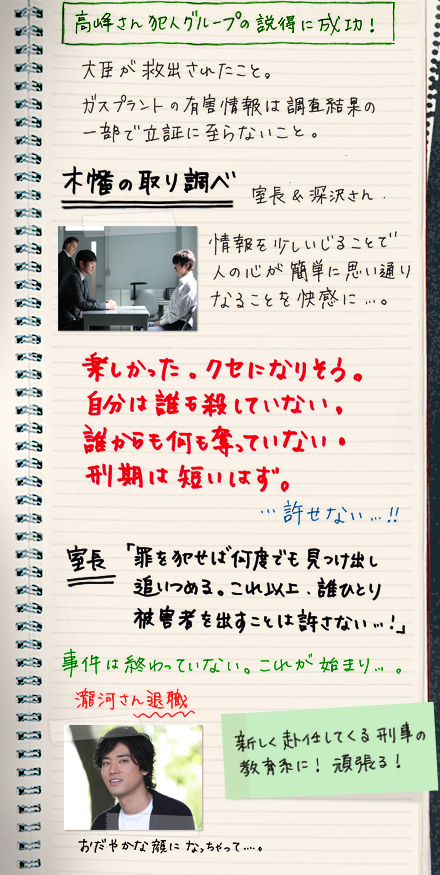 高峰さん犯人グループの説得に成功!
大臣が救出されたこと。
ガスプラントの有害情報は調査結果の
一部で立証に至らないこと。
木幡の取り調べ
室長&深沢さん.
情報を少しいじることで
人の心が簡単に思い通り
なることを快感に…。
楽しかった。クセになりそう。
自分は誰も殺していない。
誰からも何も奪っていない。
刑期は短いはず。
…許せない…!!
室長「罪を犯せば何度でも見つけ出し
追いつめる。これ以上、誰ひとり
被害者を出すことは許さない…!」
事件は終わっていない。これが始まり…。
瀧河さん退職
新しく赴任してくる刑事の
教育系に!頑張る!
おだやかな顔になっちゃって…。